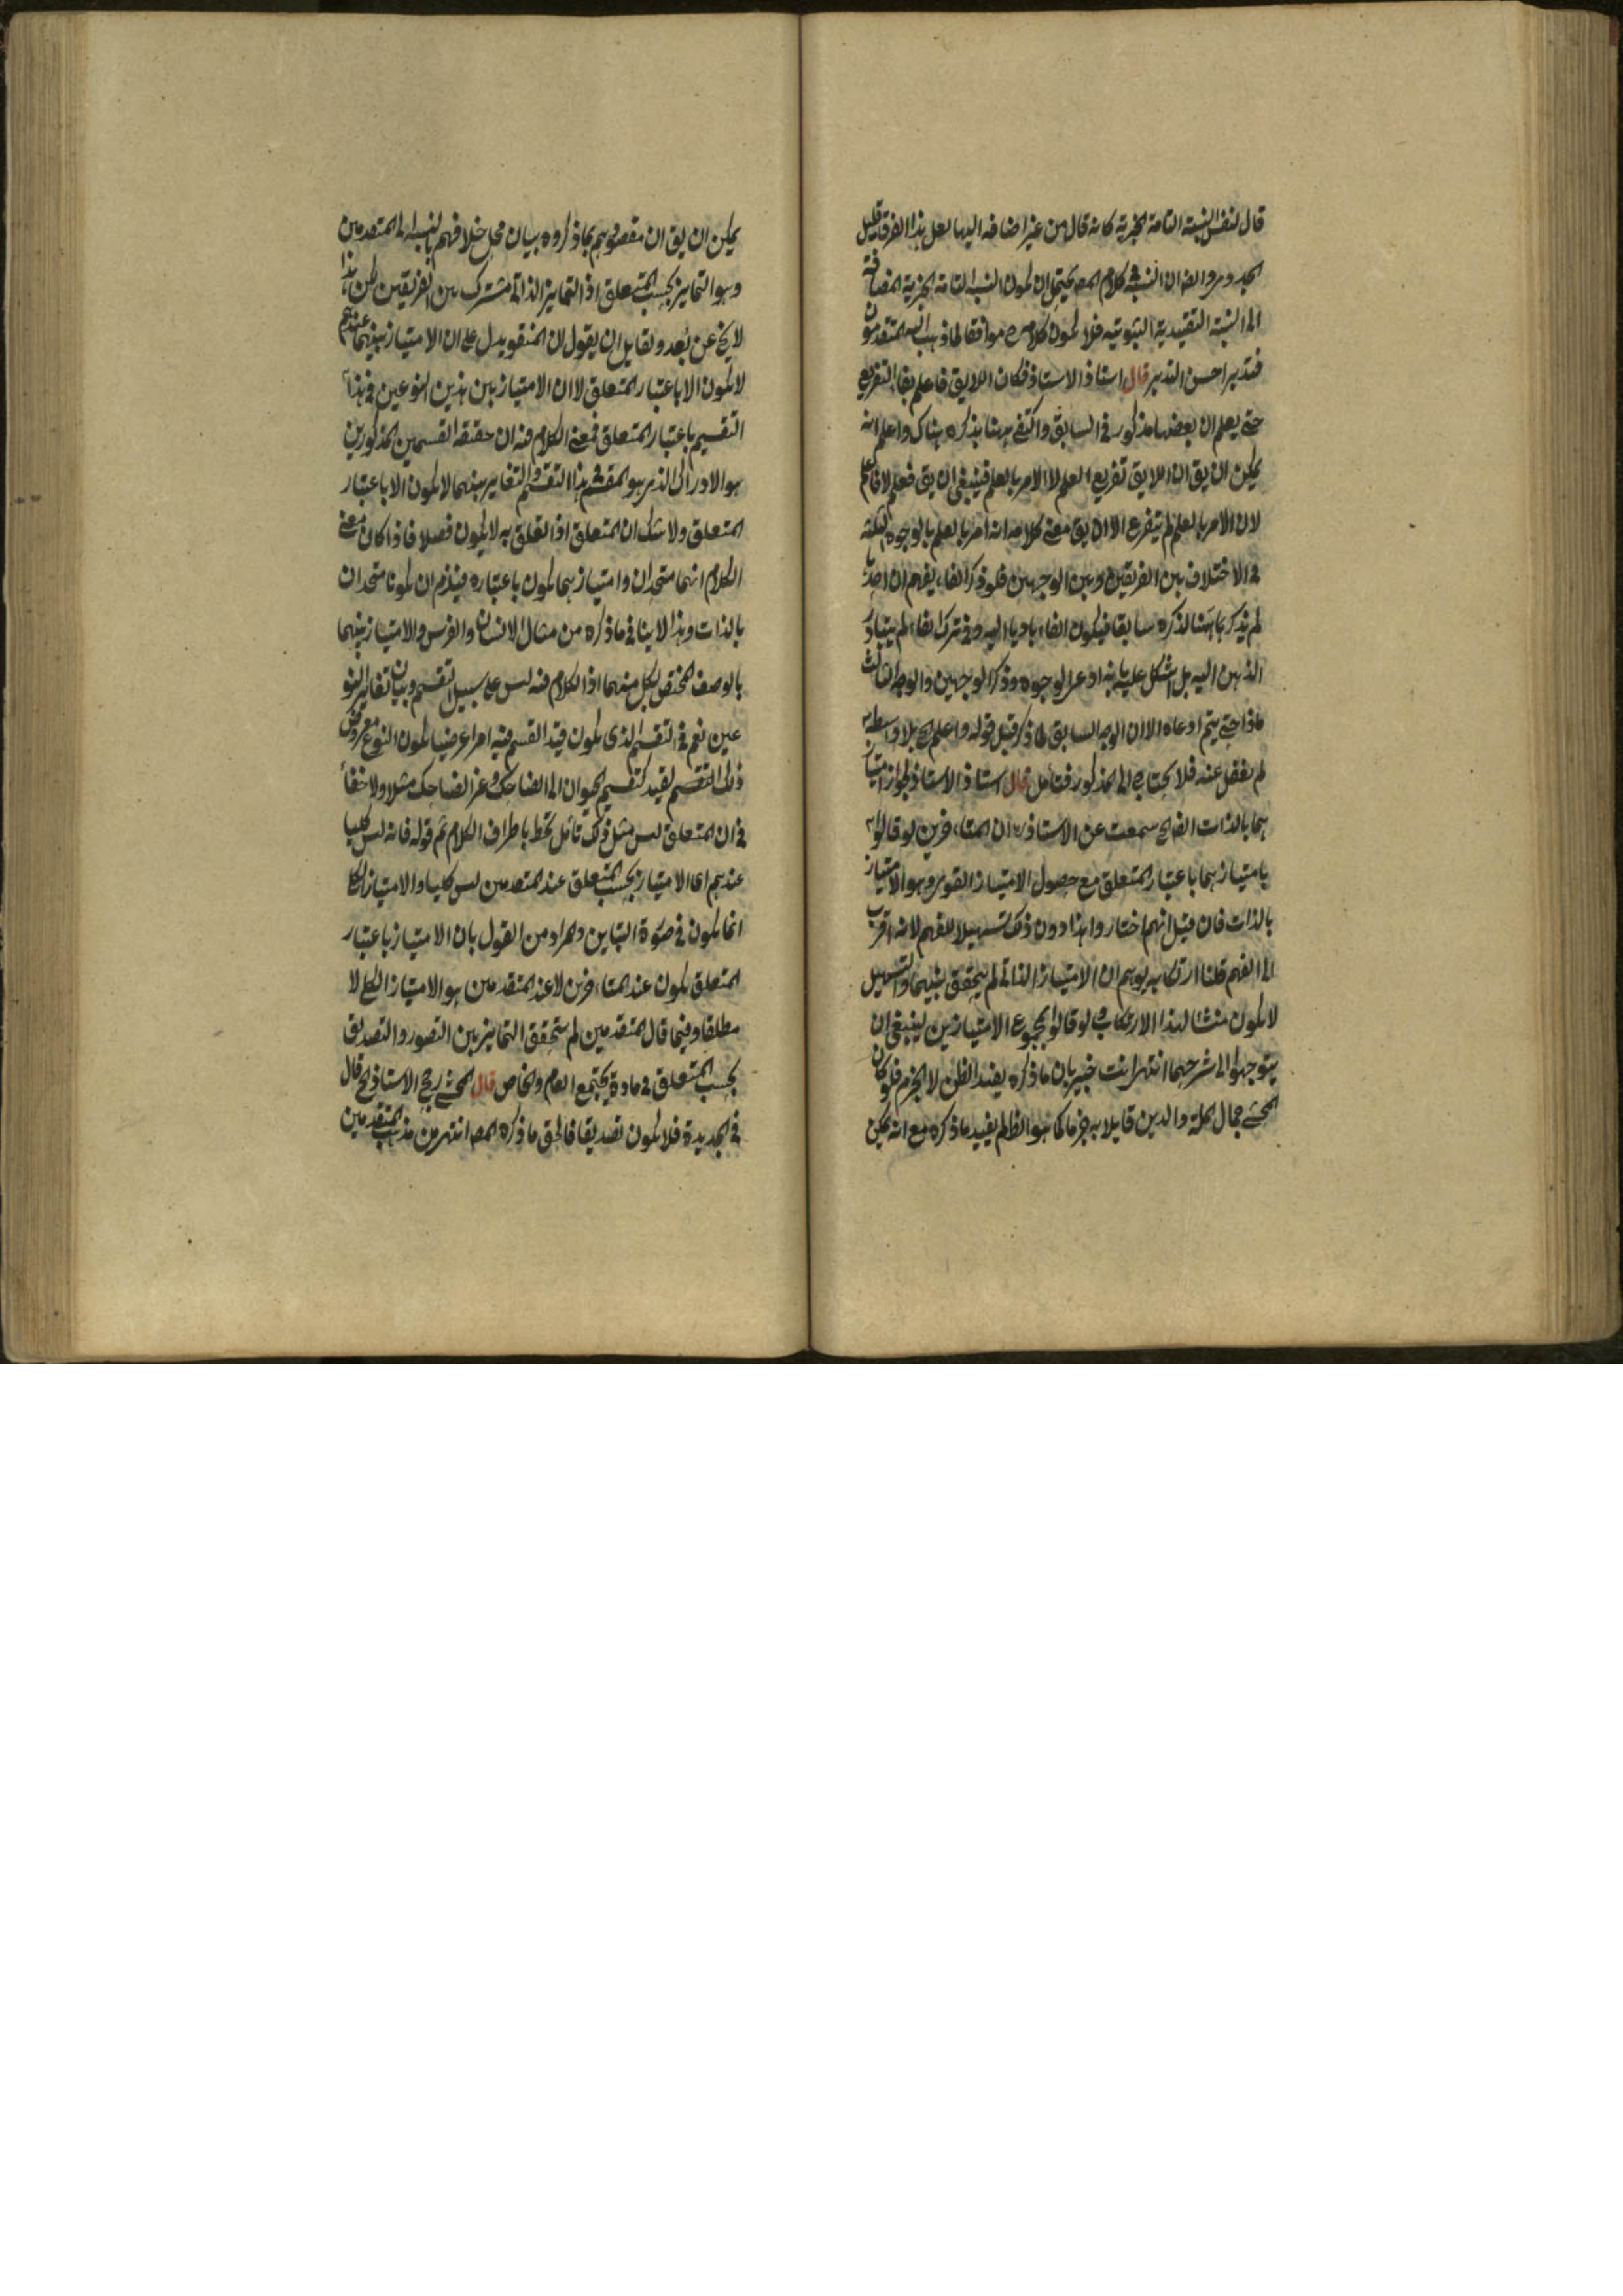 قال لنفس النسبة التامة الخبرية كانه قال من غير اضافه اليها لعل هذا الفرق قليل
الجدوى وايضا ان النسبة فى كلام المص يحتمل ان يكون النسبة التامة الخبرية المضافة
الى النسبة التقييدية الثبوتيه فلا يكون كلامه موافقا لما ذهب اليه المتقدمون
فتدبر احسن التدبر قال استاذ الاستاذ فكان اللايق فاعلم بفاء التفريع
حتى يعلم ان بعضها مذكور فى السابق واكتفى ههنا بذكره هناك واعلم انه
يمكن ان يق ان اللايق تفريع العلم لا الامر بالعلم فينبغى ان يق فعلم لا فاعلم
لان الامر بالعلم لم يتفرع الا ان يق معنى كلامه انه امر بالعلم بالوجوه الثلثة
فى الاختلاف بين الفريقين وبين الوجهين فلو ذكر الفاء يفهم ان احدها
لم يذكر ههنا لذكره سابقا فيكون الفاء هاديا اليه وفى ترك الفاء لم يتبادر
الذهن اليه بل اشكل عليه بانه ادعى الوجوه وذكر الوجهين والوجه الثالث
ماذا حتى يتم ادعاه الا ان الوجه السابق لما ذكر قبل قوله واعلم الخ بلا واسطه
لم يغفل عنه فلا يحتاج الى المذكور فتامل قال استاذ الاستاذ لجواز امتياز
هما بالذات الخ سمعت عن الاستاذ ره ان المتاخرين لو قالوا
بامتياز هما باعتبار المتعلق مع حصول الامتياز القوى وهو الامتياز
بالذات فان قيل انهم اختاروا هذا دون ذلك تسهيلا للفهم لانه اقرب
الى الفهم قلنا ارتكابه يوهم ان الامتياز الذاتى لم يتحقق بينهما والتسهيل
لا يكون منشا لهذا الارتكاب ولو قالوا بمجموع الامتيازين لينبغى ان
يتوجهوا الى شرحهما انتهى انت خبير بان ما ذكره يفيد الظن لا الجزم فلو كان
المحشى جمال الملة والدين قايلا به جزما كما هو الظ لم يفيد ما ذكره مع انه يمكن
يمكن ان يق ان مقصودهم بما ذكروه بيان محل خلافهم بالنسبة الى المتقدمين
وهو التمايز بحسب المتعلق اذ التمايز الذاتى مشترك بين الفريقين لكن هذا
لا يخ عن بعد ولقايل ان يقول ان المنقو يدل على ان الامتياز بينهما عندهم
لا يكون الا باعتبار المتعلق لا ان الامتياز بين هذين النوعين فى هذا
التقسيم باعتبار المتعلق فمعنى الكلام فيه ان حقيقة القسمين المذكورين
هو الادراك الذى هو المقسم فى هذا التقسيم والتغاير بينهما لا يكون الا باعتبار
المتعلق ولا شك ان المتعلق او التعلق به لا يكون فصلا فاذا كان معنى
الكلام انهما متحدان وامتياز هما يكون باعتباره فيلزم ان يكونا متحدان
بالذات وهذا لا ينافى ما ذكره من مثال الانسان والفرس والامتياز بينهما
بالوصف المختص بكل منهما اذ الكلام فيه ليس على سبيل التقسيم وبيان تغاير النو
عين نعم فى التقسيم الذى يكون قيد القسم فيه امرا عرضيا يكون النوع معروض
ذلك التقسيم لقيد كتقسيم الحيوان الى الضاحك وغير الضاحك مثلا ولا خفاء
فى ان المتعلق ليس مثل ذلك تامل تحط باطراف الكلام ثم قوله فانه ليس كليا
عندهم اى الامتياز بحسب المتعلق عند المتقدمين ليس كليا والامتياز الكلى
انما يكون فى صورة التباين والمراد من القول بان الامتياز باعتبار
المتعلق يكون عند المتاخرين لا عند المتقدمين هو الامتياز الكلى لا
مطلقا وفيما قال المتقدمين لم يتحقق التمايز بين التصور والتصديق
بحسب المتعلق فى مادة يجتمع العام والخاص قال المحشى رجح الاستاذ الخ قال
فى الجديدة فلا يكون تصديقا فالحق ما ذكره المص انتهى من مذهب المتقدمين